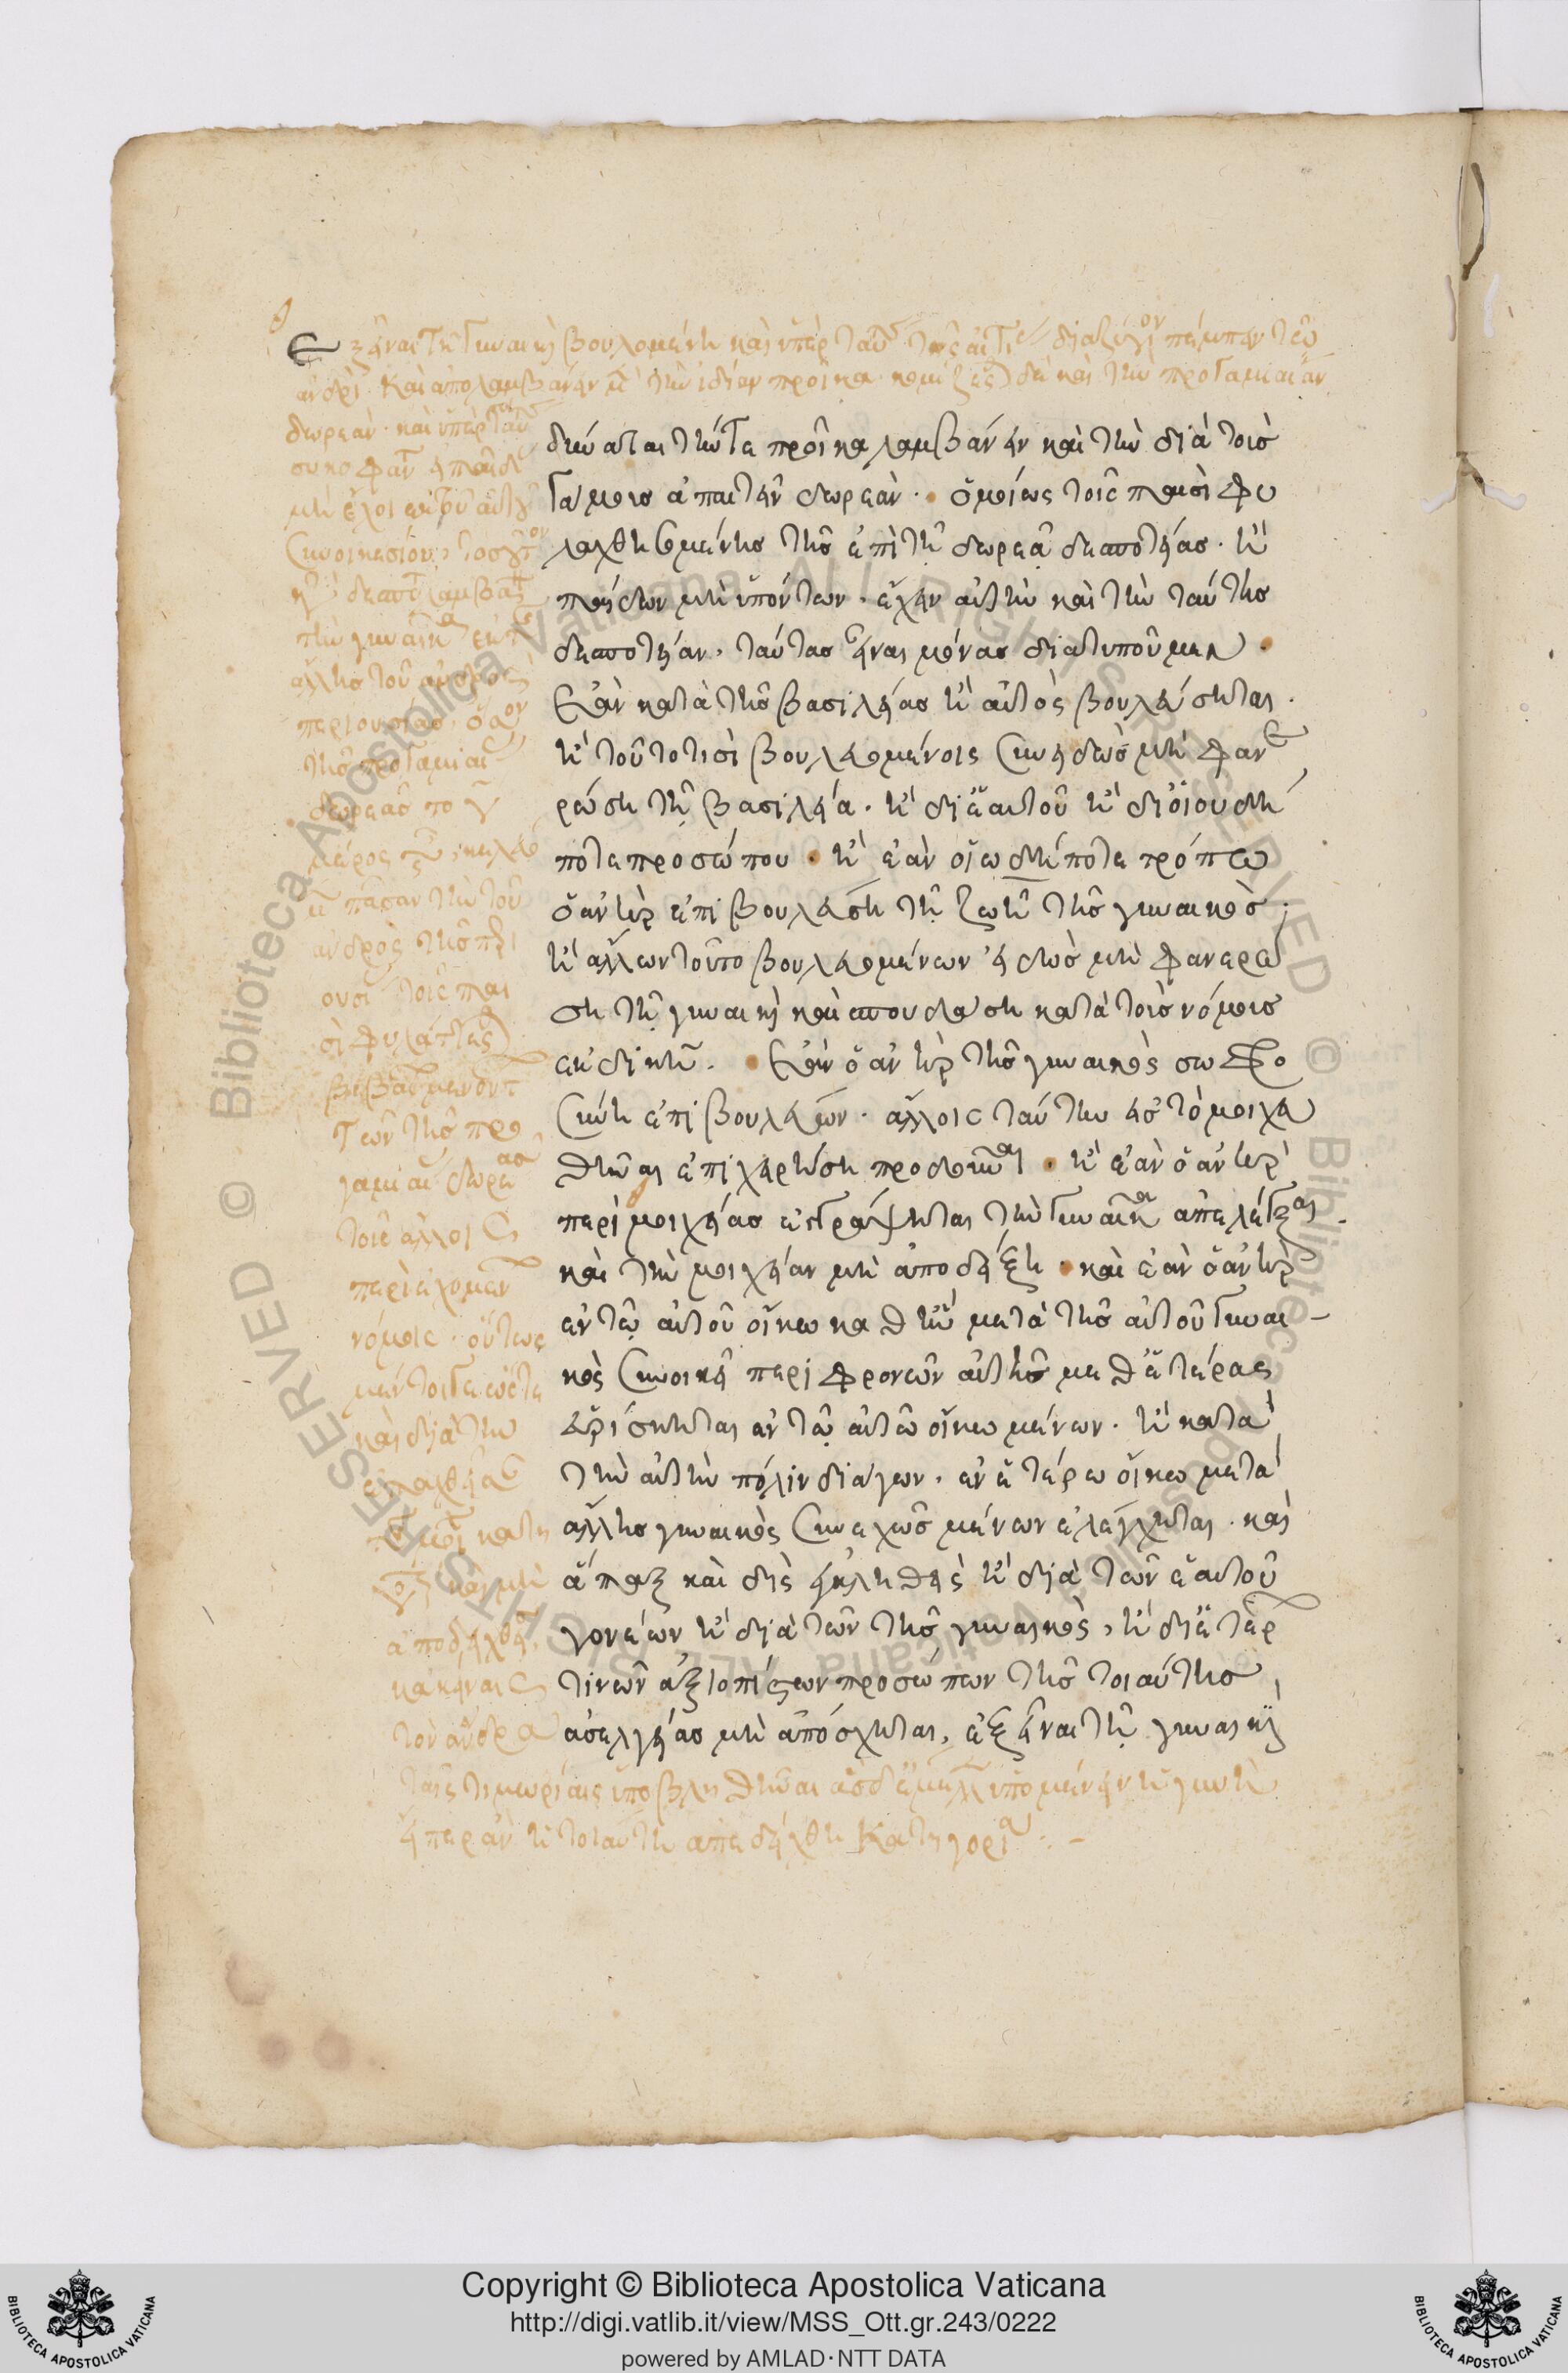 ἐξεῖναι τῆ γυναικὶ βουλομένη καὶ ὑπὲρ ταύτης τῆς αἰτίας διαζύγιον πέμπειν τῶ
ἀνδρὶ. καὶ ἀπολαμβάνειν μὲν τὴν ἰδίαν προῖκα. κομίζεσθαι δὲ καὶ τὴν προγαμιαίαν
δωρεὰν. καὶ ὑπὲρ
μὴ ἔχοι ἐκ τοῦ αὐτοῦ
συνοικεσίου, τοσοῦτον
τὴν γυναῖκα ἐκ τῆς
ἄλλης τοῦ ἀνδρὸς
περιουσίας. ὅσον
τῆς προγαμιαίας
δωρεᾶς τὸ γ
μέρος
πᾶσαν τὴν τοῦ
ἀνδρὸς
τοῖς παι
σὶ φυλάττεσθαι
τῶν τῆς προ
γαμιαίας δωρεας
τοῖς ἄλλοις
περιεχομεν
νόμοις. οὕτως
μέν τοι γε ὥστε
καὶ διὰ τὴν
μοιχ κατη
καὶ μὴ
ἀποδειχθεῖσαν
κἀκεῖναις
τὸν ἄνδρα
δύναται τήν τε προῖκα λαμβάνειν καὶ τὴν διὰ τοὺς
γάμους ἀπαιτεῖν δωρεὰν. ὁμοίως τοῖς παισὶ φυ
λαχθησομένης τῆς ἐπὶ τῆ δωρεᾶ δεσποτείας. ἢ
παίδων μὴ ὑπόντων. ἔχειν αὐτὴν καὶ τὴν ταύτης
δεσποτείαν. ταύτας εἶναι μόνας διατυποῦμεν.
Ἐὰν κατὰ τῆς βασιλείας ἢ αὐτὸς βουλεύσηται.
ἢ τοῦτο τισὶ βουλευομένοις συνειδὼς μὴ φανε
ρώση τῆ βασιλεία. ἢ δι' ἑαυτοῦ ἢ δι' οἱουδή
ποτε προσώπου. ἢ ἐὰν οἱωδήποτε τρόπω
ὁ ἀνὴρ ἐπιβουλεύση τῆ ζωῆ τῆς γυναικὸς.
ἢ ἄλλων τοῦτο βουλευομένων εἰδὼς μὴ φανερώ
ση τῆ γυναικὶ καὶ σπουδάση κατὰ τοὺς νόμους
ἐκδικεῖν. Ἐὰν ὁ ἀνὴρ τῆς γυναικὸς σωφρο
σύνη ἐπιβουλεύων. ἄλλοις ταύτην εἰς τὸ μοιχευ
θῆναι ἐπιχειρήση προδοῦναι. ἢ ἐὰν ὁ ἀνὴρ
περὶ μοιχείας ἐγγράψηται τὴν γυναῖκα ἀπελέγξαι
καὶ τὴν μοιχείαν μὴ ἀποδείξη. καὶ ἐὰν ὁ ἀνὴρ
ἐν τῶ αὐτοῦ οἴκω καθ' ἣν μετὰ τῆς αὐτοῦ γυναι
κὸς συνοικεῖ περιφρονῶν αὐτῆς μεθ' ἑτέρας
εὑρίσκηται ἐν τῶ αὐτῶ οἴκω μένων. ἢ κατὰ
τὴν αὐτὴν πόλιν διάγων. ἐν ἑτέρω οἴκω μετὰ
ἄλλης γυναικὸς συνεχῶς μένων ἐλέγχηται. καὶ
ἅπαξ καὶ δὶς ἐγκληθεὶς ἢ διὰ τῶν ἑαυτοῦ
γονέων ἢ διὰ τῶν τῆς γυναικὸς, ἢ δι' ἑτέρ
τινῶν ἀξιοπίστων προσώπων τῆς τοιαύτης
ἀσελγείας μὴ ἀπόσχηται, ἐξεῖναι τῆ γυναικὶ
ταῖς τιμωρίαις ὑποβληθῆναι ἃς δ' ἔμελλεν ὑπομένειν ἡ γυνὴ
εἴπερ ἂν ἡ τοιαύτη ἀπεδείχθη κατηγορία
Copyright © Biblioteca Apostolica Vaticana
http://digi.vatlib.it/view/MSS_Ott.gr.243/0222
powered by AMLAD·NTT DATA
BIBLIOTECA APOSTOLICA VATICANA
BIBLIOTECA APOSTOLICA VATICANA